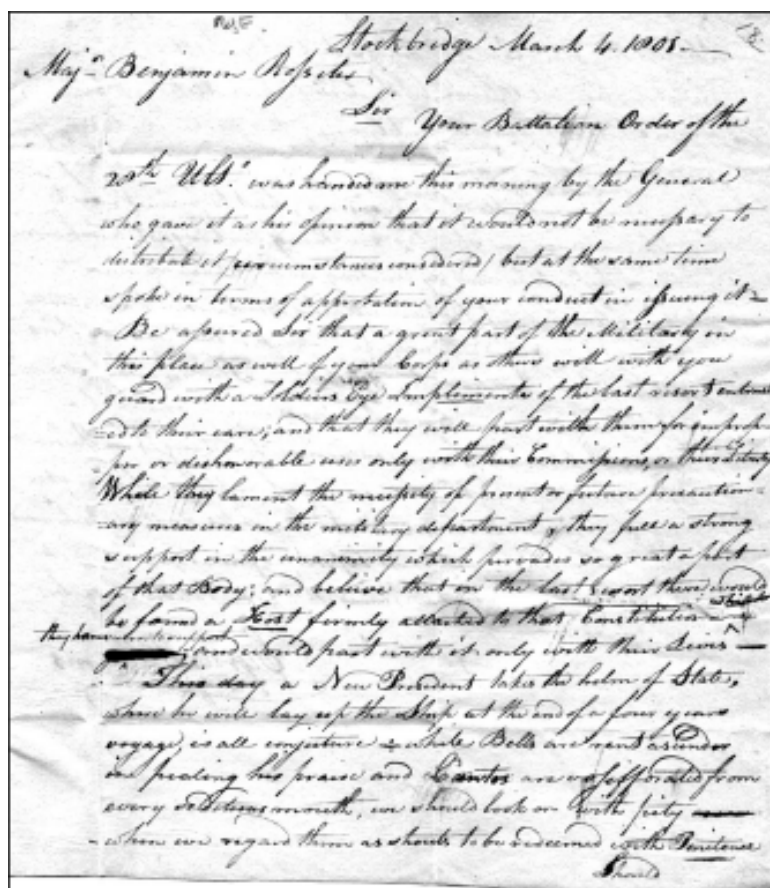 Stockbridge March 4. 1801.
Maj.r Benjamin Rosseter
Sir Your Battalion Order of the
28th Ult.o was handed me this morning by the General
who gave it as his opinion that it would not be necessary to
distribute it (circumstances considered) but at the same time
spoke in terms of approbation of your conduct in issuing it =
Be assured Sir that a great part of the Military in
this place as well of your Corps as others will with you
guard with a Soldiers Eye Implements of the last resort entrust
=ed to their care; and that they will part with them for
or dishonorable uses only with their Commissions, or their
While they lament the necessity of present or future precaution=
ary measures in the military department, they feel a strong
support in the unanimity which pervades so great a part
of that Body; and believe that on the last resort there would
be found a Host firmly attached to that Constitution
they have to support
and would part with it only with their Lives —
This day a New President takes the helm of State,
where he will lay up the Ship at the end of a four years
voyage, is all conjecture = while Bells are rent asunder
in pealing his praise and are from
every mouth, we should look on with pity
when we regard them as shouts to be redeemed with Penitence
Should